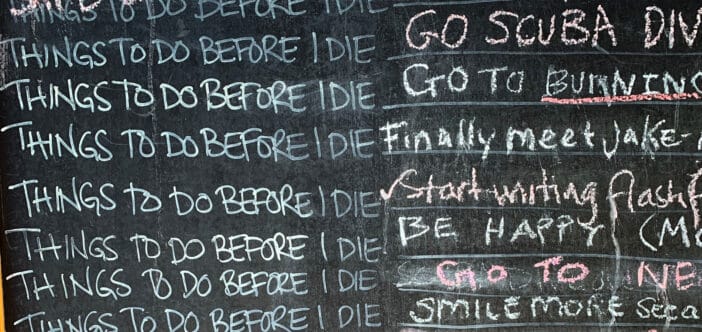 THINGS TO DO BEFORE I DIE
THINGS TO DO BEFORE I DIE GO SCUBA DIV
THINGS TO DO BEFORE I DIE GO TO BURNING
THINGS TO DO BEFORE I DIE Finally meet JAKE-
THINGS TO DO BEFORE I DIE Start writing flash
THINGS TO DO BEFORE I DIE BE HAPPY (Mo
THINGS TO DO BEFORE I DIE GO TO NE
THINGS TO DO BEFORE I DIE SMILE MORE Seca